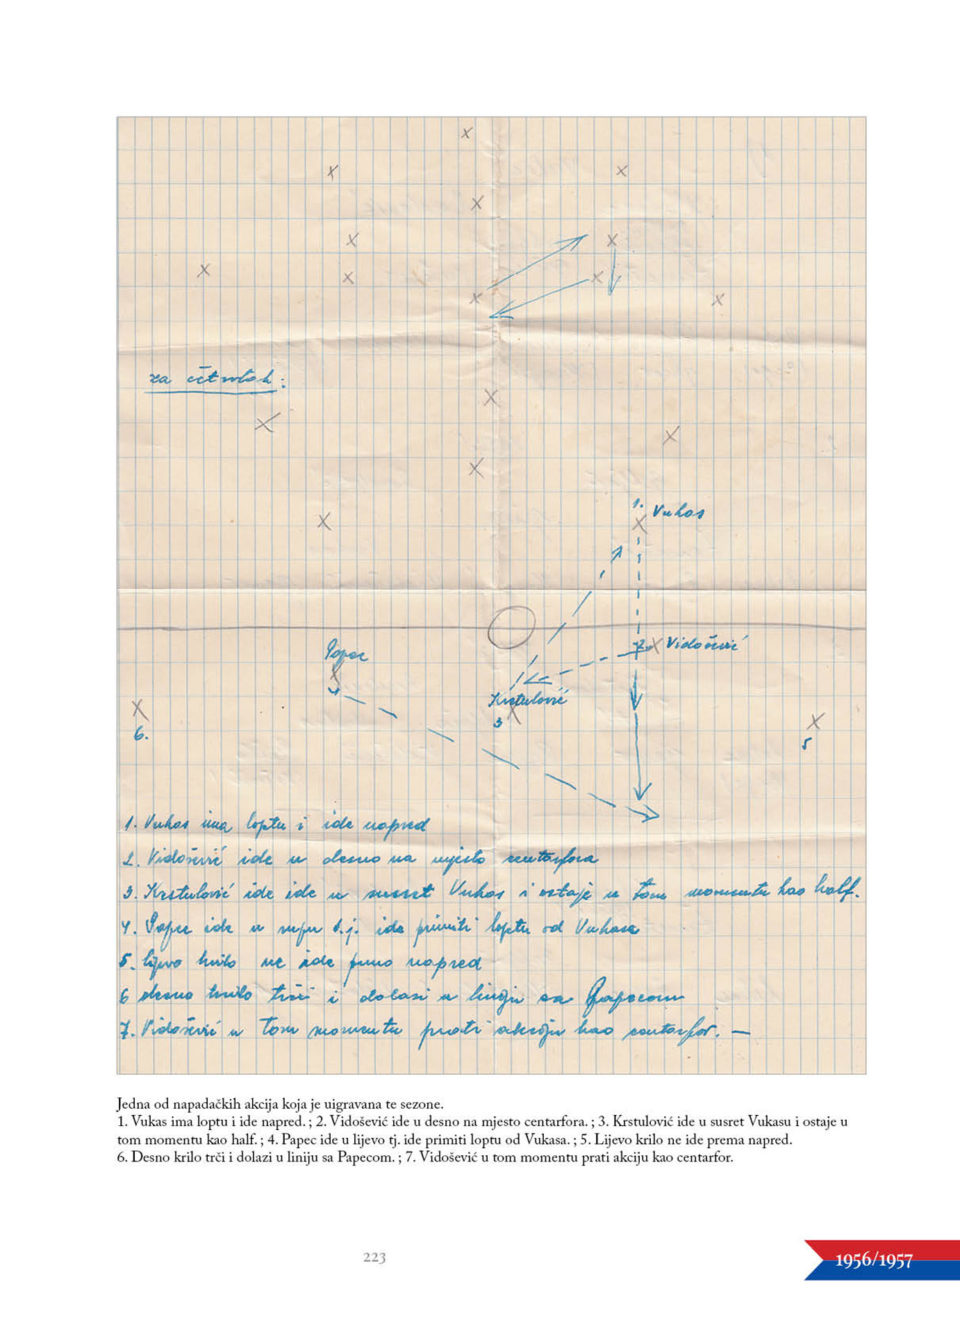 za četvrtak:
1. Vukas
Papec
7 Vidošević
Krstulović
3
6.
5
1. Vukas ima loptu i ide napred
2. Vidošević ide u desno na mjesto centarfora
3. Krstulović ide ide u susret Vukas i ostaje u tom momentu kao half.
4. Papec ide u t.j. ide primiti loptu od Vukasa
5. lijevo krilo ne ide puno napred
6 desno krilo trči i dolazi u liniju sa Papecom
7. Vidošević u tom momentu prati akciju kao centarfor. —
Jedna od napadačkih akcija koja je uigravana te sezone.
1. Vukas ima loptu i ide napred. ; 2. Vidošević ide u desno na mjesto centarfora. ; 3. Krstulović ide u susret Vukasu i ostaje u
tom momentu kao half. ; 4. Papec ide u lijevo tj. ide primiti loptu od Vukasa. ; 5. Lijevo krilo ne ide prema napred.
6. Desno krilo trči i dolazi u liniju sa Papecom. ; 7. Vidošević u tom momentu prati akciju kao centarfor.
223
1956/1957